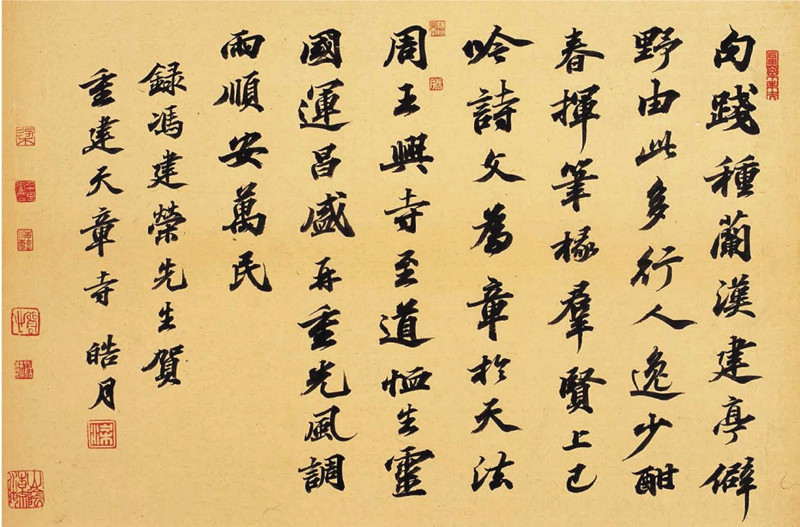 句踐種蘭漢建亭僻
野由此多行人逸少酣
春揮筆椽羣賢上巳
吟詩文為章於天法
周王興寺至道恤生靈
國運昌盛再重光風調
雨順安萬民
録馮建榮先生賀
重建天章寺 皓月